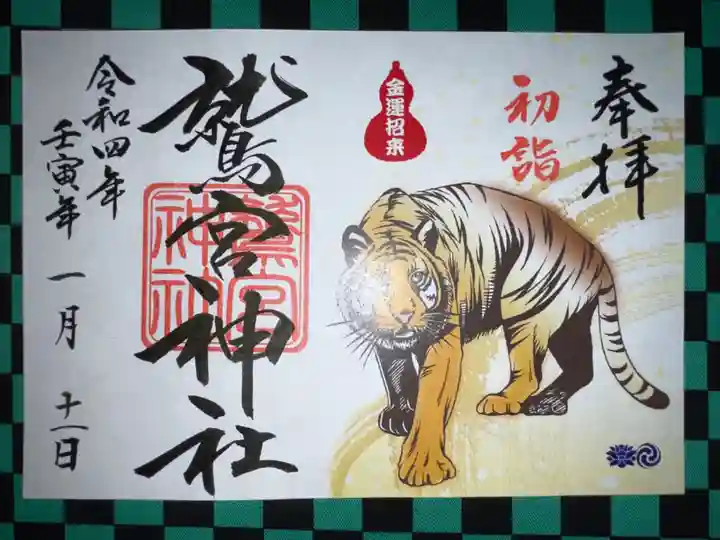 奉拝
初詣
金運招来
鷲宮神社
鷲宮
神社
令和四年
壬寅年
一月 十一日